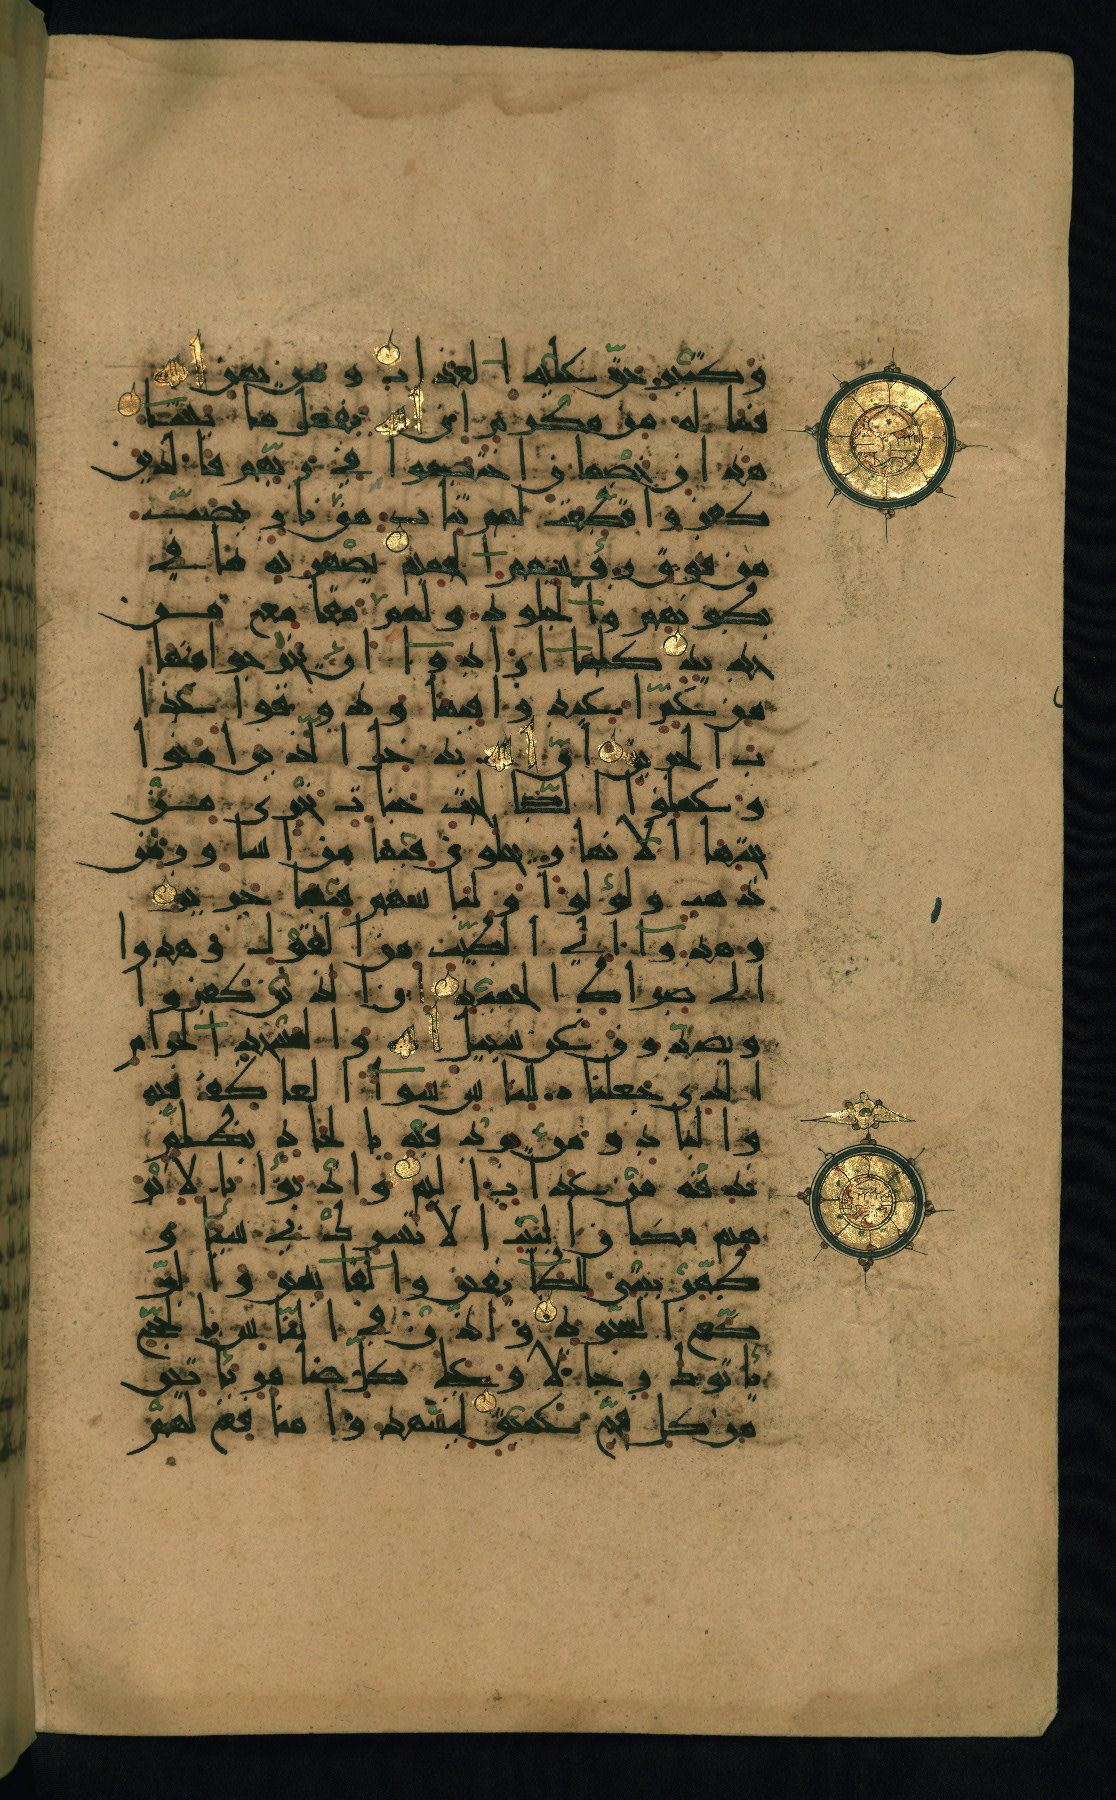 وكثير حق عليه العذاب ومن يهن الله
فما له من مكرم ان الله يفعل ما يشا
هذان خصمان اختصموا في ربهم فالذين
كفروا قطعت لهم ثياب من نار يصب
من فوق رؤسهم الحميم يصهر به ما في
بطونهم والجلود ولهم مقامع من
حديد كلما ارادوا ان يخرجوا منها
من غم اعيدوا فيها وذوقوا عذا
ب الحريق ان الله يدخل الذين امنوا
وعملوا الصالحات جنات تجري من
تحتها الانهار يحلون فيها من اساور من
ذهب ولؤلؤا ولباسهم فيها حرير
وهدوا الى الطيب من القول وهدوا
الى صراط الحميد ان الذين كفروا
ويصدون عن سبيل الله والمسجد الحرام
الذي جعلناه للناس سوا العاكف فيه
والباد ومن يرد فيه بالحاد بظلم
نذقه من عذاب اليم واذ بوانا لابر
هيم مكان البيت ان لا تشرك بي شيا و
طهر بيتي للطائفين والقائمين والر
كع السجود واذن في الناس بالحج
ياتوك رجالا وعلى كل ضامر ياتين
من كل فج عميق ليشهدوا منافع لهم